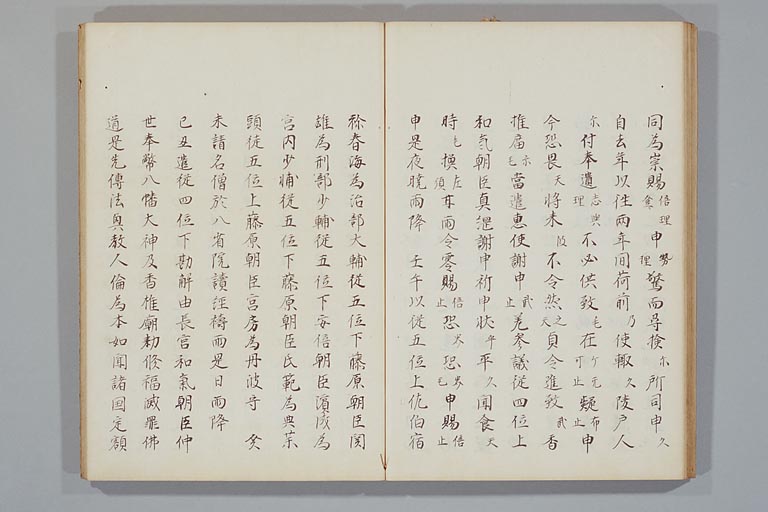 同為祟賜倍理申勢理驚而尋捡尓所司申久
自去年以往両年間荷前乃使輙久陵戸人
尓付奉遺志理不必供致毛在介可止疑布止申
今恐畏天将来不令然之天貞令進致武香
推庙尓毛當遣恵使謝申武止差参議従四位上
和氣朝臣真綱謝申祈申状乎平久聞食天
時毛換左須亦雨令零賜倍止恐美恐美毛申賜倍止
申是夜暁雨降 壬午以従五位上仇伯宿
祢春海為治部大輔従五位下藤原朝臣関
雄為刑部少輔従五位下安倍朝臣濱成為
宮内少輔従五位下藤原朝臣氏範為典薬
頭従五位上藤原朝臣宮房為丹波守 癸
未請名僧於八省院讀経祷雨是日雨降
己丑遣従四位下勘解由長官和氣朝臣仲
世奉幣八幡大神及香椎廟勅修福滅罪佛
道是先傳法與教人倫為本如聞諸国定額